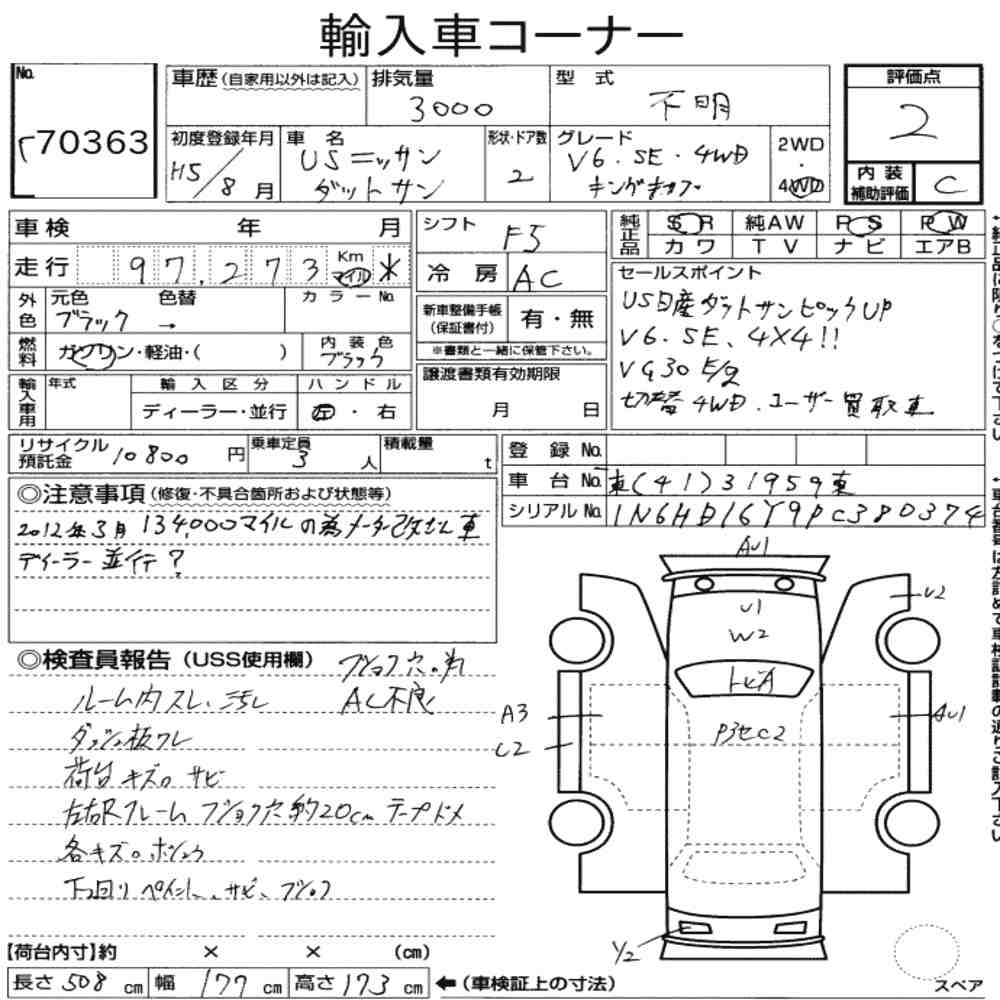 輸入車コーナー
No.
70363
車歴(自家用以外は記入)
排気量
3000
型 式
不明
評価点
2
初度登録年月
H5/8月
車 名
USニッサン
ダットサン
形状・ドア数
2
グレード
V6.SE.4WD
キングキャブ
2WD
・
4WD
内 装
補助評価
C
車検 年 月
シフト
F5
純正品
S R
純AW
P S
P W
カワ
TV
ナビ
エアB
走行 97,273 Km マイル *
冷房 AC
セールスポイント
US日産ダットサンピックUP
V6.SE、4X4!!
VG30 E/g
切替4WD.ユーザー買取車
外色
元色
ブラック
色替
→
カラーNo.
新車整備手帳
(保証書付)
有・無
※書類と一緒に保管下さい。
燃料
ガソリン・軽油・( )
内装色
ブラック
譲渡書類有効期限
月 日
輸入車用
年式
輸入区分
ディーラー・並行
ハンドル
左・右
リサイクル
預託金
10800円
乗車定員
3人
積載量
t
登録 No.
車台 No.
東(41)31959東
シリアル No.
1N6HD16Y9PC380374
◎注意事項(修復・不具合箇所および状態等)
2012年3月 134,000マイルの為メーター改ざん車
ディーラー並行?
◎検査員報告(USS使用欄)
フショク穴。有
ルーム内スレ、汚レ
AC不良
ダッシュ板ワレ
荷台キズ。サビ
左右Rフレーム フショク穴 約20cm テープドメ
各キズ。ボシュウ
下回り ペイント、サビ、フショク
AU1
U1
W2
トビA
P3セC2
U2
A3
C2
AU1
Y2
【荷台内寸】約 × × (cm)
長さ 508 cm
幅 177 cm
高さ 173 cm
←(車検証上の寸法)
スペア